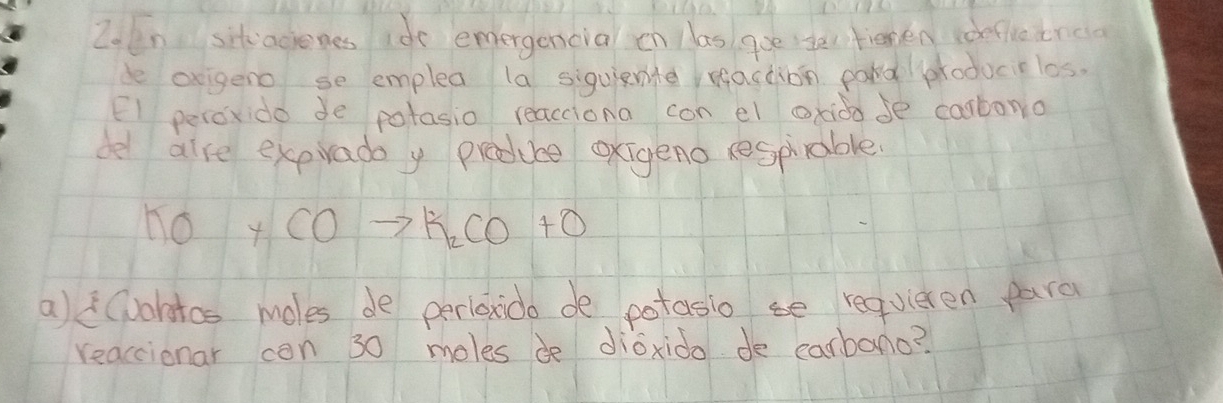 2. En situaciones de emergencia en las que se tienen deficiencia
de oxigeno se emplea la siguiente reacción para producirlos.
El peroxido de potasio reacciona con el oxido de carbono
del aire expirado y produce oxigeno respirable.
KO + CO → K₂CO + O
a) ¿Cuantos moles de perioxido de potasio se requieren para
reaccionar con 30 moles de dióxido de carbono?